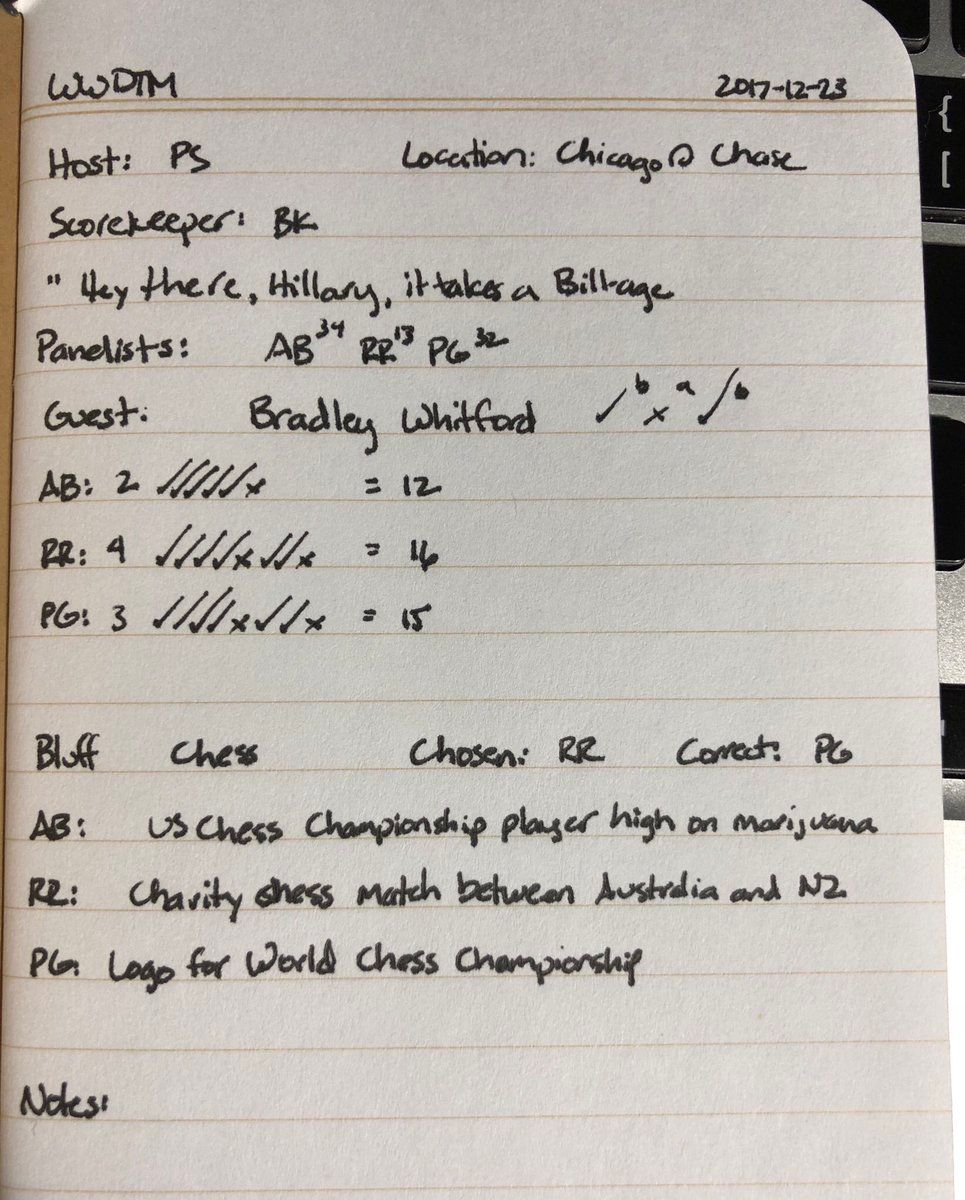 WWDTM 2017-12-23
Host: PS Location: Chicago @ Chase
Scorekeeper: BK
" Hey there, Hillary, it takes a Bill-age
Panelists: AB34 RR13 PG32
Guest: Bradley Whitford ✓b xa ✓b
AB: 2 ✓✓✓✓✓x = 12
RR: 4 ✓✓✓✓x✓✓x = 16
PG: 3 ✓✓✓✓x✓✓x = 15
Bluff Chess Chosen: RR Correct: PG
AB: US Chess Championship player high on marijuana
RR: Charity chess match between Australia and NZ
PG: Logo for World Chess Championship
Notes:
{
[